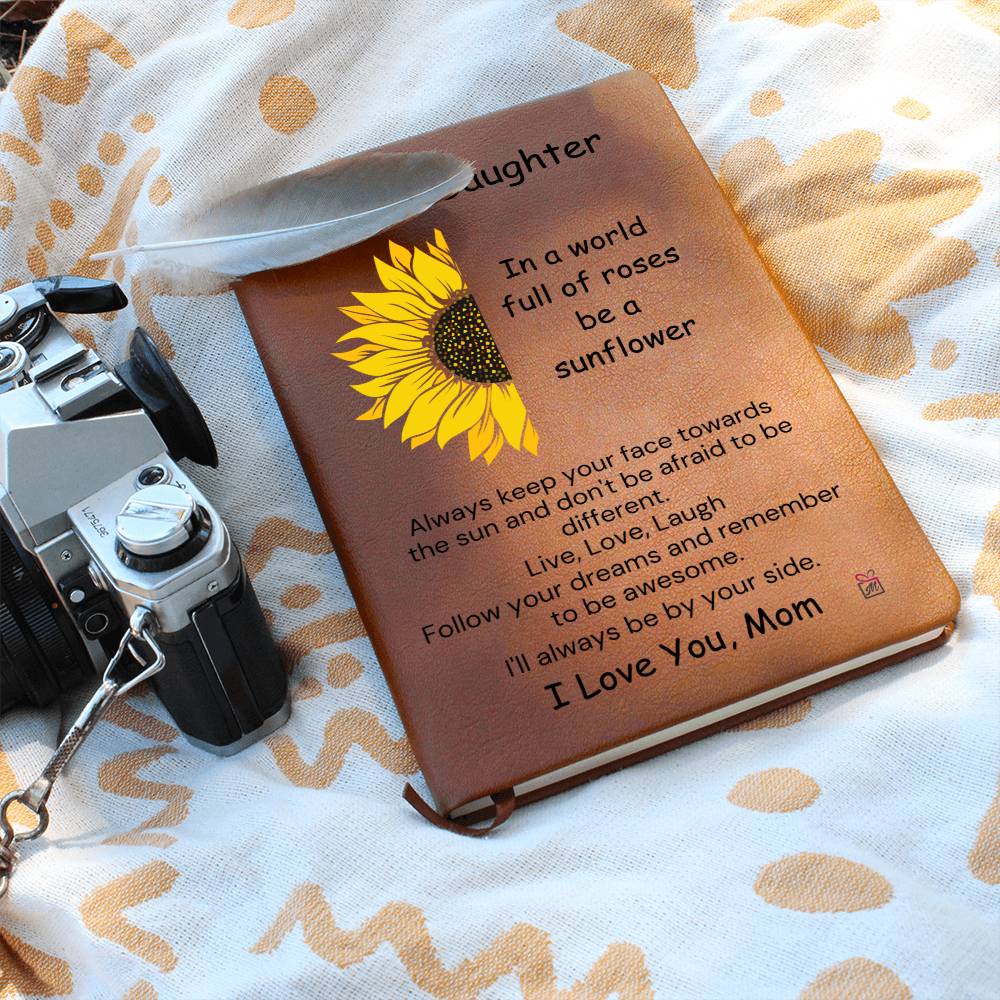 aughter
In a world
full of roses
be a
sunflower
Always keep your face towards
the sun and don't be afraid to be
different.
Live, Love, Laugh
Follow your dreams and remember
to be awesome.
I'll always be by your side.
I Love You, Mom
M